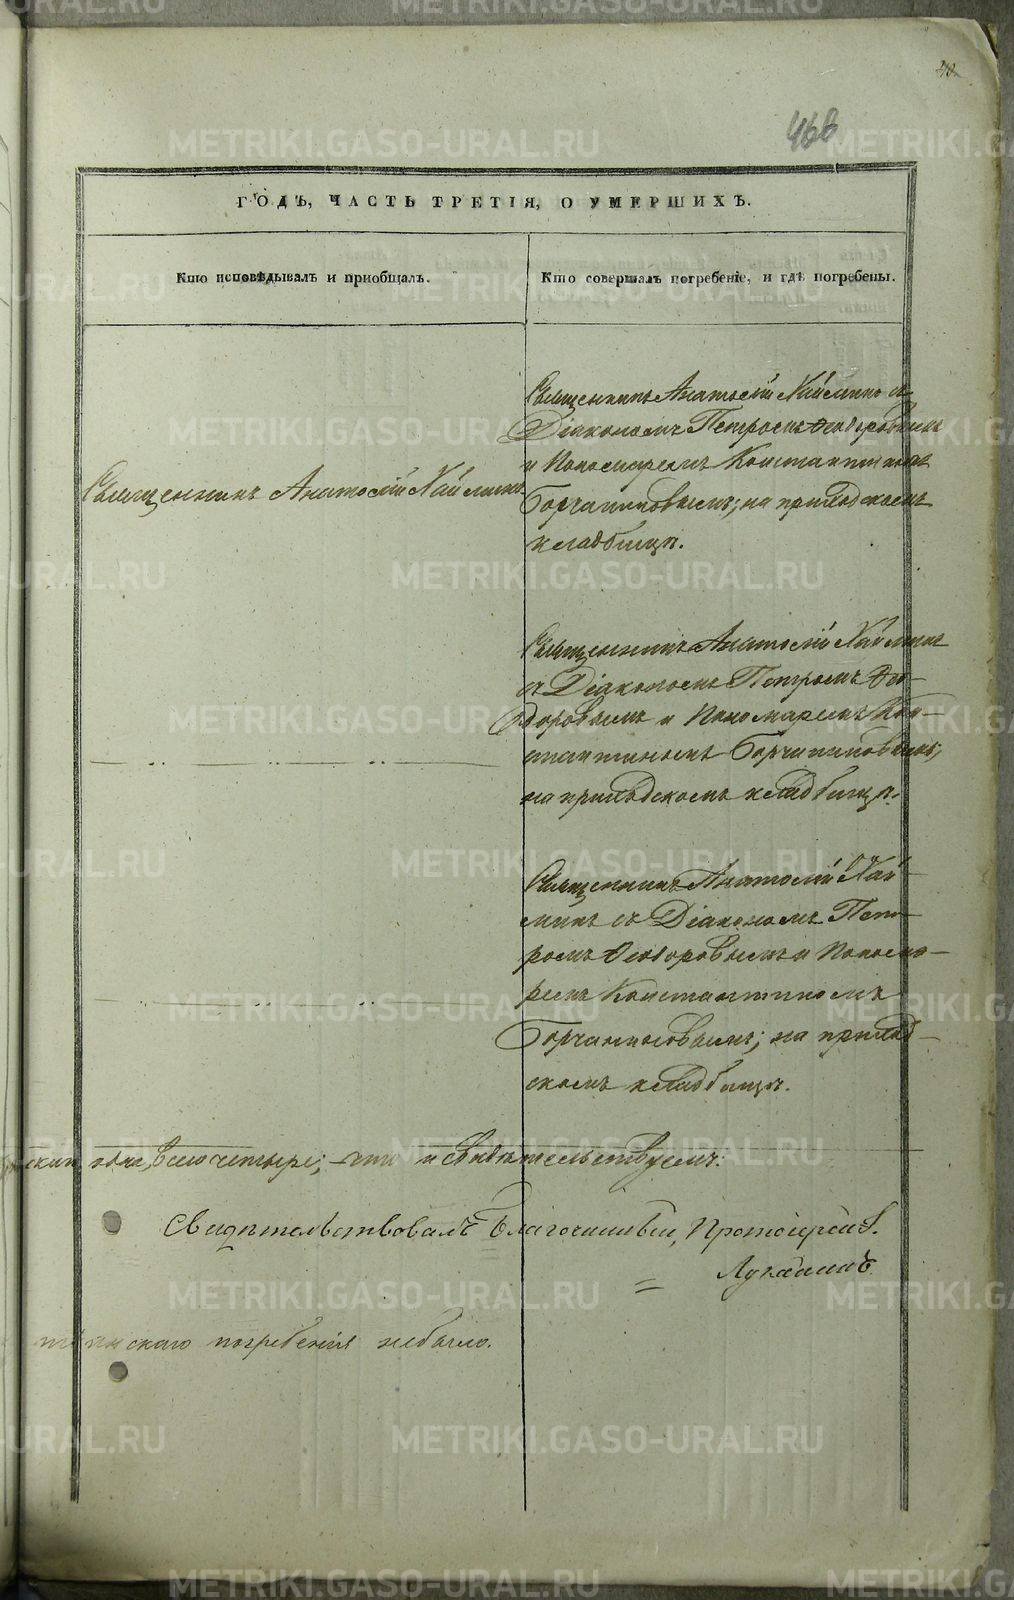 466
ГОДЪ, ЧАСТЬ ТРЕТІЯ, О УМЕРШИХЪ.
Кто исповѣдывалъ и пріобщалъ.
Кто совершалъ погребеніе, и гдѣ погребены.
Священникъ Анатолій Хаймикъ
Священникъ Анатолій Хаймикъ съ
Діакономъ Петромъ Ѳеодоровымъ
и Пономаремъ Константиномъ
Борчаниновымъ; на приходскомъ
кладбищѣ.
Священникъ Анатолій Хаймикъ
съ Діакономъ Петромъ Ѳео-
доровымъ и Пономаремъ Кон-
стантиномъ Борчаниновымъ;
на приходскомъ кладбищѣ.
Священникъ Анатолій Хай-
микъ съ Діакономъ Пет-
ромъ Ѳеодоровымъ и Понома-
ремъ Константиномъ
Борчаниновымъ; на приход-
скомъ кладбищѣ.
всего четыре; что и свидѣтельствуемъ:
Свидѣтельствовалъ Благочинный, Протоіерей
Лукаминъ
погребенія небыло.
METRIKI.GASO-URAL.RU